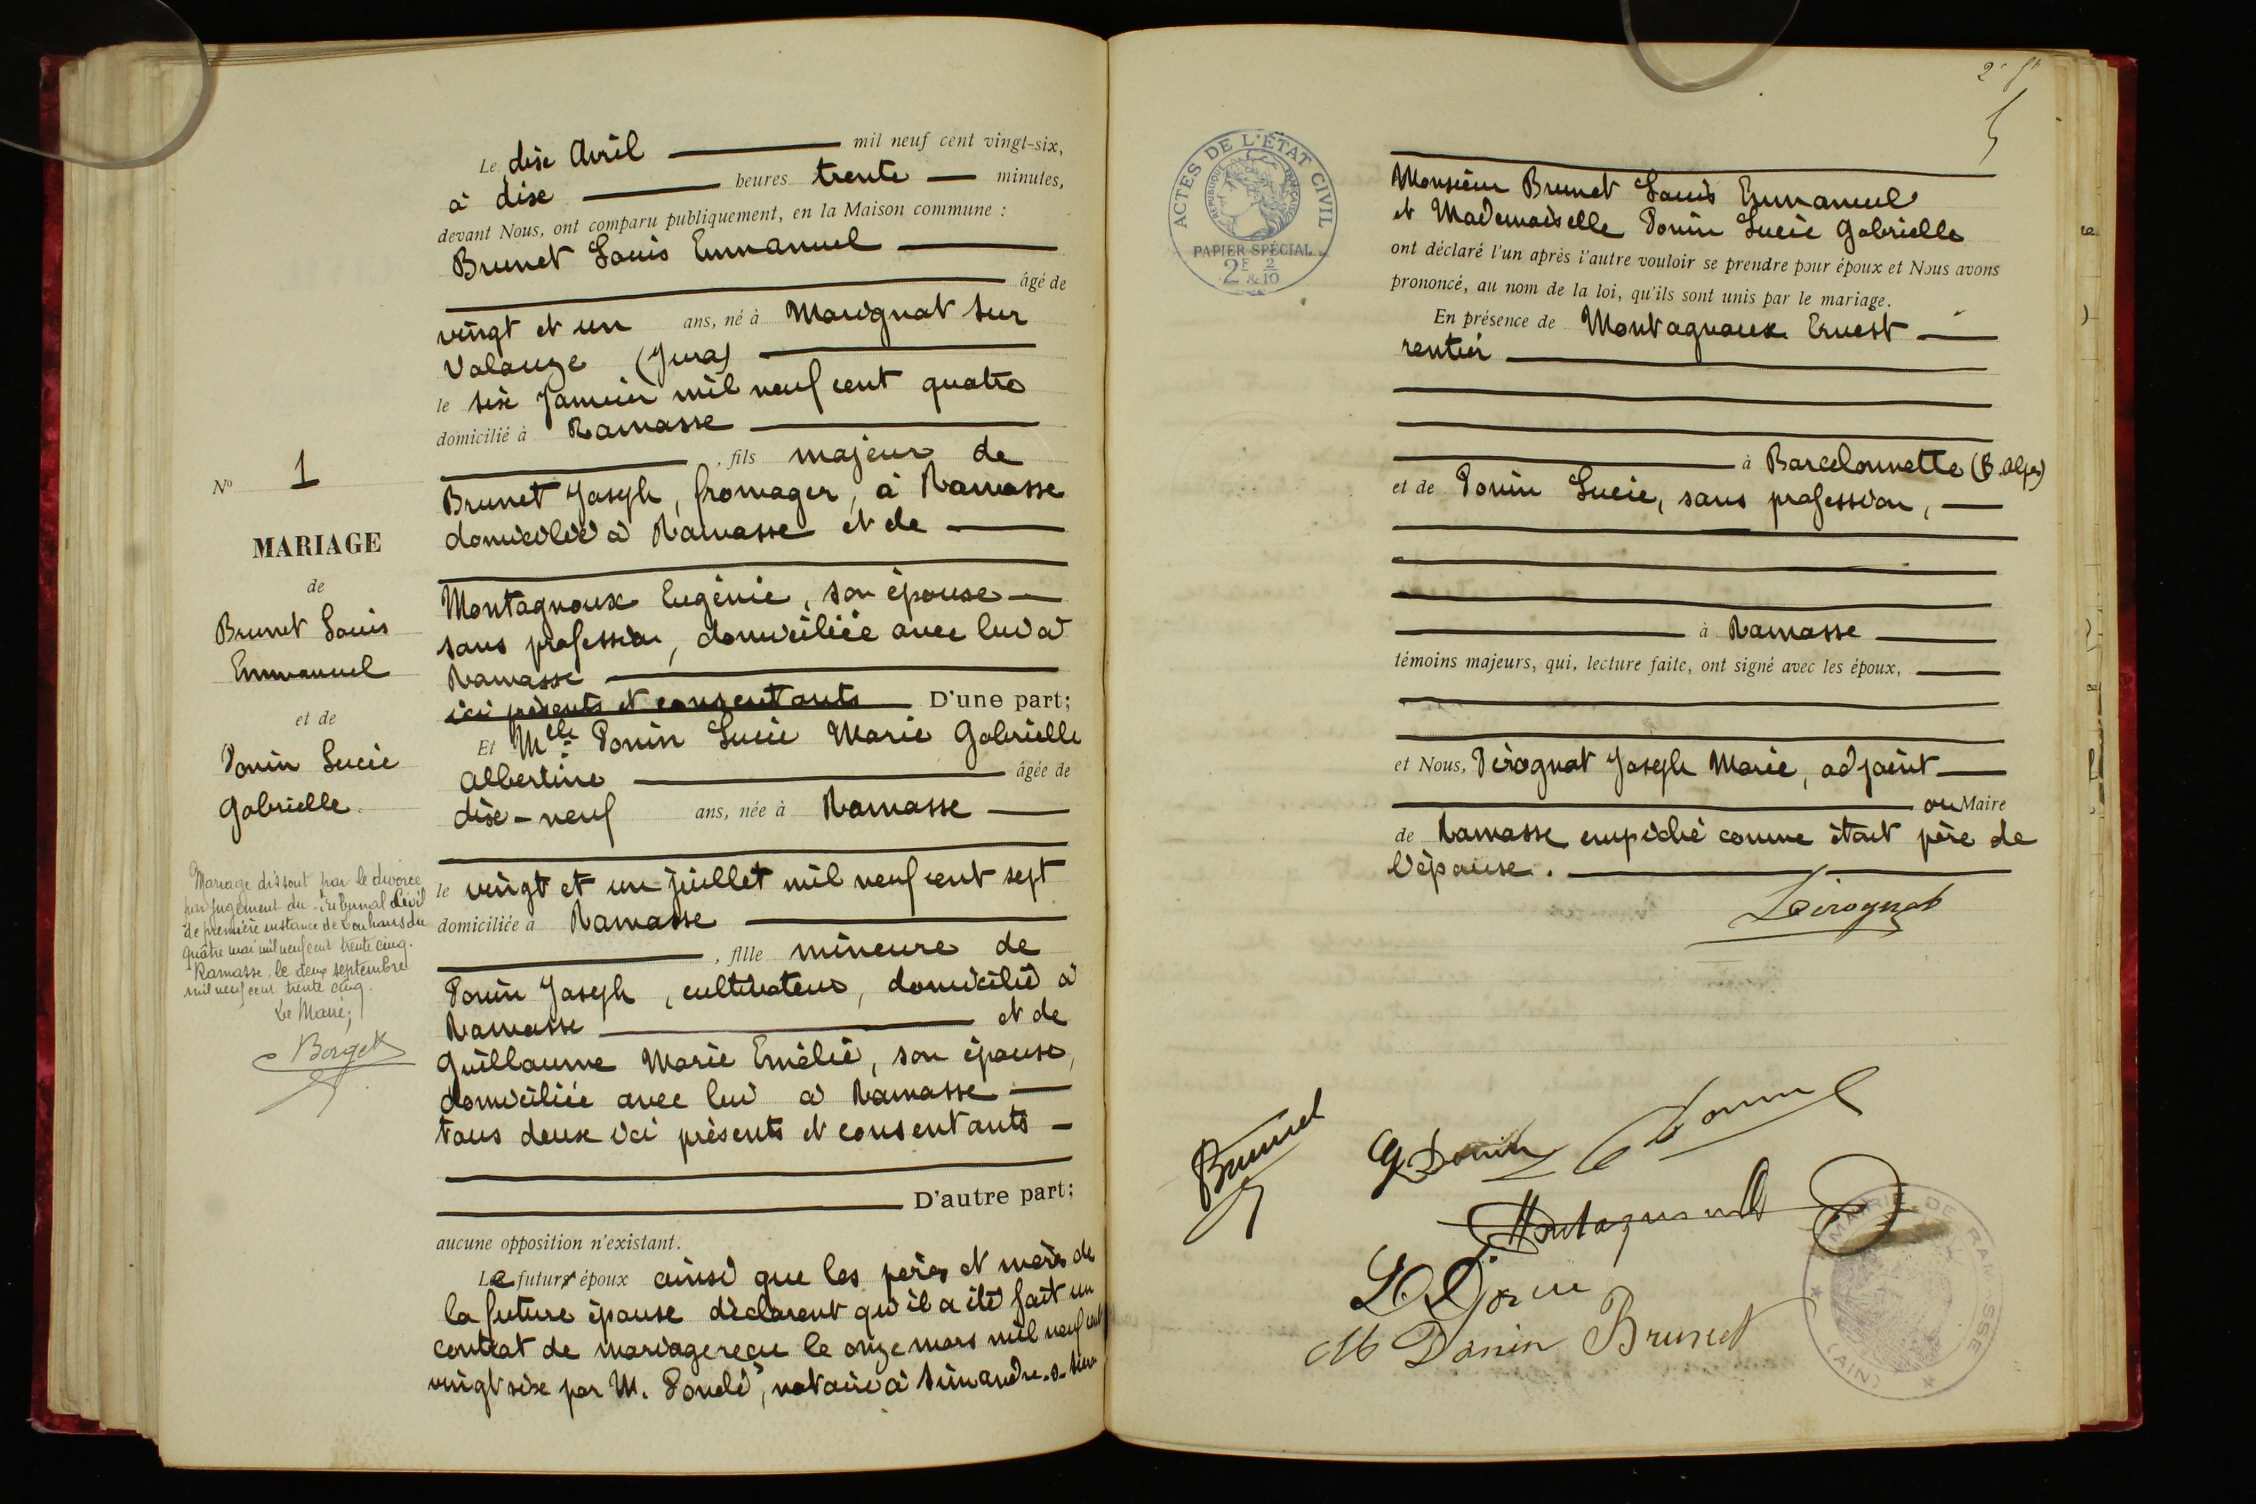 Le dix Avril mil neuf cent vingt-six,
à dix heures trente minutes,
devant Nous, ont comparu publiquement, en la Maison commune :
Brunet Louis Emmanuel
âgé de
vingt et un ans, né à Marignat sur
Valouze (Jura)
le six Janvier mil neuf cent quatre
domicilié à Ramasse
, fils majeur de
Brunet Joseph, fromager, à Ramasse
domicilié à Ramasse et de
Montagnoux Eugénie, son épouse
sans profession, domiciliée avec lui à
Ramasse
ici présents et consentants D'une part;
Et Melle Ponin Lucie Marie Gabrielle
Albertine âgée de
dix-neuf ans, née à Ramasse
le vingt et un juillet mil neuf cent sept
domiciliée à Ramasse
, fille mineure de
Ponin Joseph, cultivateur, domicilié à
Ramasse et de
Guillaume Marie Emélie, son épouse,
domiciliée avec lui à Ramasse
tous deux ici présents et consentants
D'autre part;
aucune opposition n'existant.
Le futur époux ainsi que les pères et mères de
la future épouse déclarent qu'il a été fait un
contrat de mariage reçu le onze mars mil neuf cent
vingt six par M. notaire à Simandre-s-Suran
No 1
MARIAGE
de
Brunet Louis
Emmanuel
et de
Ponin Lucie
Gabrielle
Mariage dissout par le divorce
par jugement du Tribunal Civil
de première instance de Louhans du
quatre mai mil neuf cent trente cinq.
Ramasse, le deux septembre
mil neuf cent trente cinq.
Le Maire;
Borget
ACTES DE L'ÉTAT CIVIL
RÉPUBLIQUE FRANÇAISE
PAPIER SPÉCIAL
2F & 2/10
Monsieur Brunet Louis Emmanuel
et Mademoiselle Ponin Lucie Gabrielle
ont déclaré l'un après l'autre vouloir se prendre pour époux et Nous avons
prononcé, au nom de la loi, qu'ils sont unis par le mariage.
En présence de Montagnoux Ernest
rentier
à Barcelonnette (B. Alpes)
et de Ponin Lucie, sans profession,
à Ramasse
témoins majeurs, qui, lecture faite, ont signé avec les époux,
et Nous, Pérognat Joseph Marie, adjoint
au Maire
de Ramasse empêché comme étant père de
l'épouse.
Pérognat
Brunet
G Ponin
Montagnoux
M Ponin Brunet
MAIRIE DE RAMASSE
(AIN)